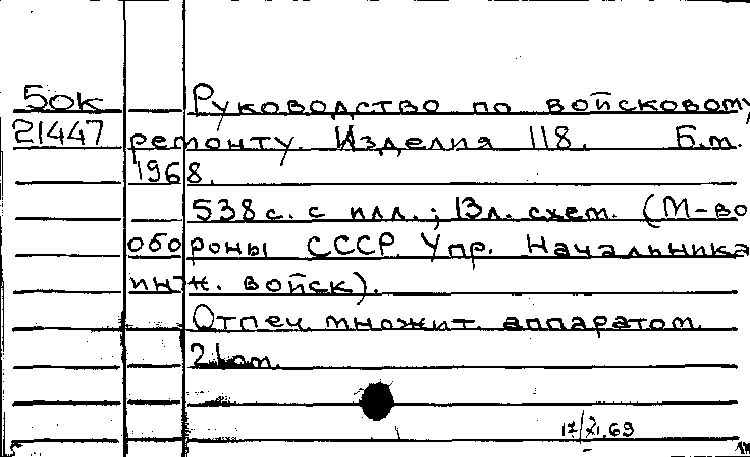 50к Руководство по войсковому
21447 ремонту. Изделия 118. Б.м.
1968.
538 с. с илл.; 13 л. схем. (М-во
обороны СССР. Упр. Начальника
инж. войск).
Отпеч. множит. аппаратом.